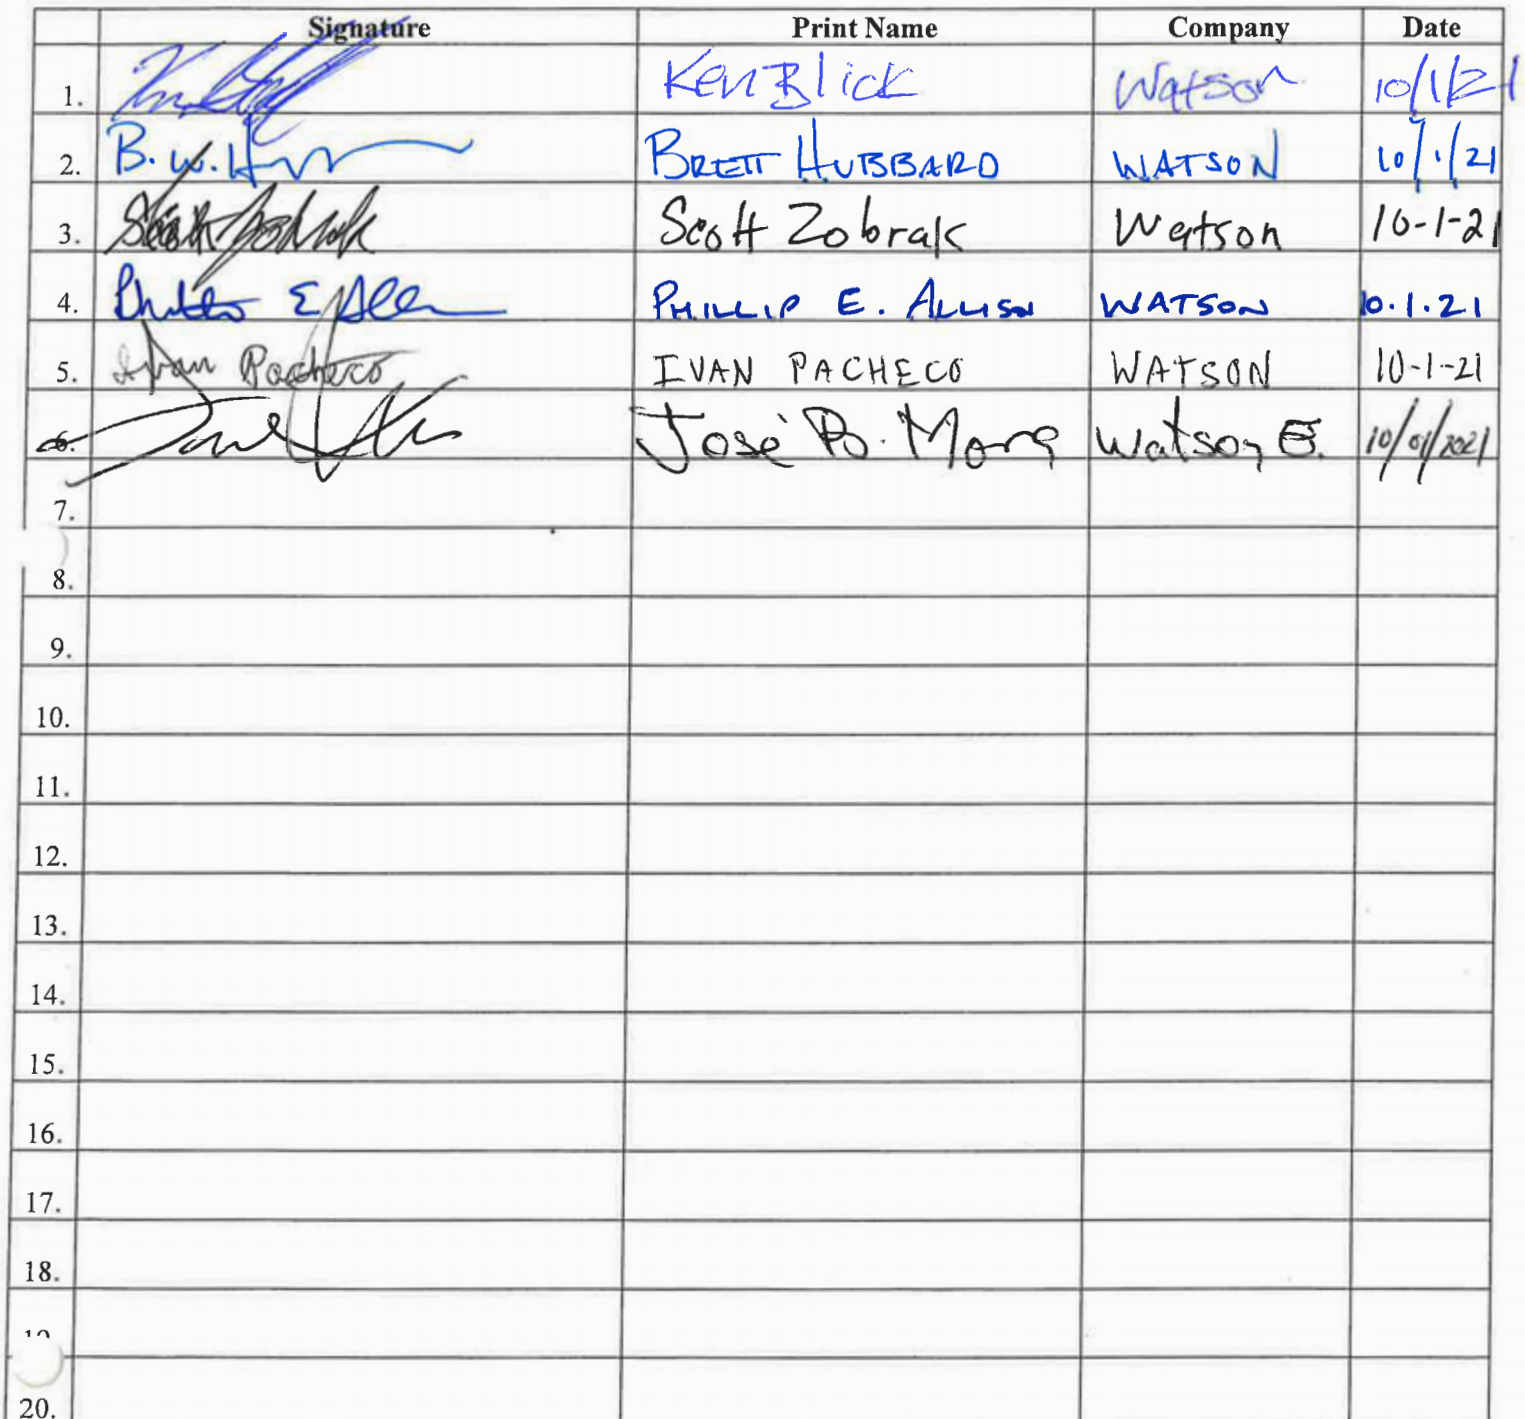 Signature Print Name Company Date
1. Ken Blick Watson 10/1/21
2. B. W. H BRETT HUBBARD WATSON 10/1/21
3. Scott Zobrak Scott Zobrak Watson 10-1-21
4. PHILLIP E. ALLISON WATSON 10.1.21
5. Ivan Pacheco IVAN PACHECO WATSON 10-1-21
6. José Watson E. 10/01/2021
7.
8.
9.
10.
11.
12.
13.
14.
15.
16.
17.
18.
20.